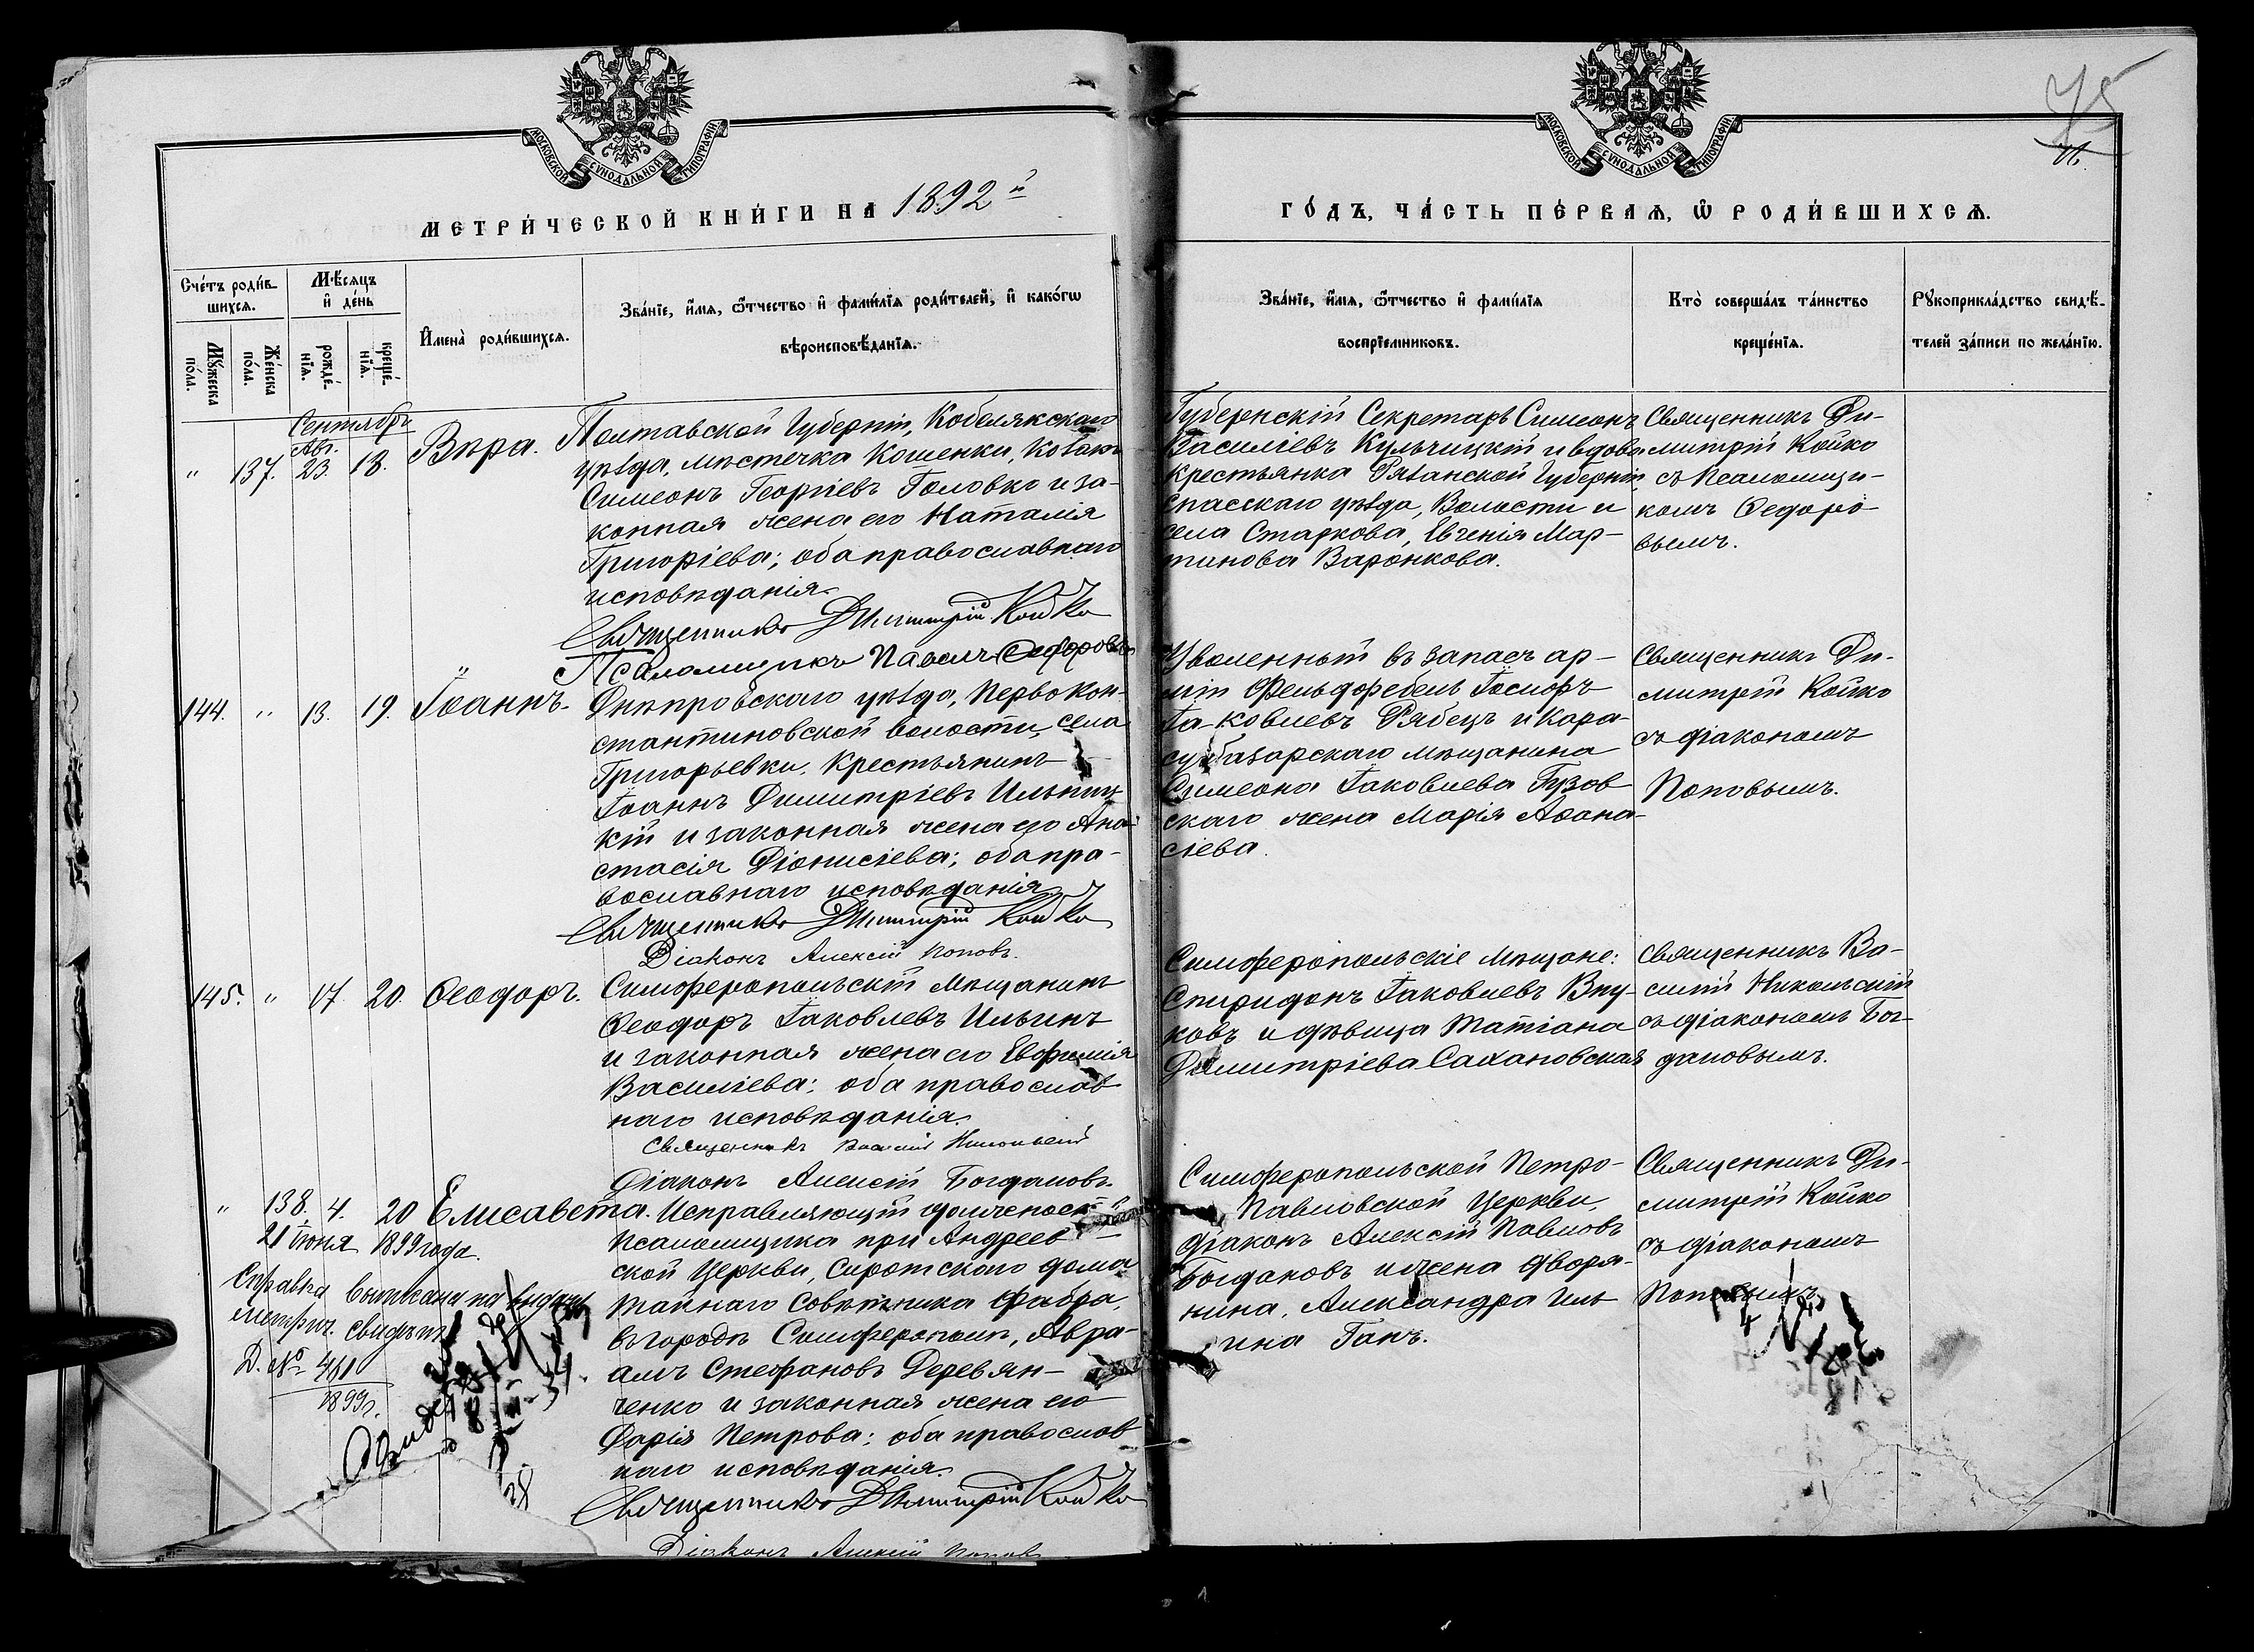 75
МОСКОВСКОЙ СѴНОДАЛЬНОЙ ТИПОГРАФІИ
МОСКОВСКОЙ СѴНОДАЛЬНОЙ ТИПОГРАФІИ
МЕТРИ́ЧЕСКОЙ КНИ́ГИ НА 1892й
ГО́ДЪ, ЧА́СТЬ ПЕ́РВАЯ, Ѿ РОДИ́ВШИХСЯ.
Сче́тъ роди́в-
шихся.
Мꙋжеска по́ла.
Же́нска по́ла.
Мѣ́сяцъ и де́нь
рожде́-нїя.
креще́-нїя.
Имена̀ роди́вшихся.
Зва́нїе, и́мя, ѻ҆́тчество и фами́лїя роди́телей, и како́гѡ
вѣроисповѣ́данїя.
Зва́нїе, и́мя, ѻ҆́тчество и фами́лїя
воспрїе́мниковъ.
Кто̀ соверша́лъ та́инство
креще́нїя.
Рꙋкоприкла́дство свидѣ́-
телей за́писи по жела́нїю.
Сентябрь
" 137. Авг. 23. 13. Вѣра.
Полтавской Губерніи, Кобелякскаго
уѣзда, мѣстечка Кошенки, Козакъ
Симеонъ Георгіевъ Головко и за-
конная жена его Наталія
Григоріева; оба православнаго
исповѣданія.
Священникъ Димитрій Койко
Псаломщикъ Павелъ Ѳедоровъ
Губернскій Секретарь Симеонъ
Василіевъ Кульчицкій и вдова
крестьянка Рязанской Губерніи,
Спасскаго уѣзда, Волости и
села Старкова, Евгенія Мар-
тинова Варонкова.
Священникъ Ди-
митрій Койко
съ Псаломщи-
комъ Ѳедоро-
вымъ.
144. " 13. 19. Іоаннъ.
Днѣпровскаго уѣзда, Первокон-
стантиновской волости, села
Григорьевки, Крестьянинъ
Іоаннъ Димитріевъ Ильниц
кій и законная жена его Ана-
стасія Діонисіева; оба пра-
вославнаго исповѣданія.
Священникъ Димитрій Койко
Діаконъ Алексій Поповъ.
Уволенный въ запасъ ар-
міи Фельдфебель Іосифъ
Іаковлевъ Рябецъ и Кара-
субазарскаго мѣщанина
Симеона Іаковлева Гузов
скаго жена Марія Аѳана-
сіева.
Священникъ Ди-
митрій Койко
съ діакономъ
Поповымъ.
145. " 17. 20. Ѳеодоръ.
Симферопольскій Мѣщанинъ
Ѳеодоръ Іаковлевъ Ильинъ
и законная жена его Евфимія
Василіева; оба православ
наго исповѣданія.
Священникъ Василій Никольскій
Діаконъ Алексій Богдановъ.
Симферопольскіе Мѣщане:
Спиридонъ Іаковлевъ Вну-
ковъ и дѣвица Татіана
Димитріева Сахановская
Священникъ Ва-
силій Никольскій
съ діакономъ Бог-
дановымъ.
" 138. 4. 20 Елисавета.
Исправляющій должность
Псаломщика при Андреев
ской Церкви, Сиротскаго дома
тайнаго Совѣтника Фабра,
въ городѣ Симферополѣ, Авра-
амъ Стефановъ Деревян-
ченко и законная жена его
Дарія Петрова; оба православ
наго исповѣданія.
Священникъ Димитрій Койко
Діаконъ Алексій Поповъ
Симферопольской Петро-
Павловской Церкви,
діаконъ Алексій Павловъ
Богдановъ и жена дворя-
нина, Александра Иль
ина Ганъ.
Священникъ Ди-
митрій Койко
съ діакономъ
Поповымъ.
21 Іюня 1899 года.
Справка выписана на выдачу
метрич. свидѣт.
Д. № 461
1899 г.